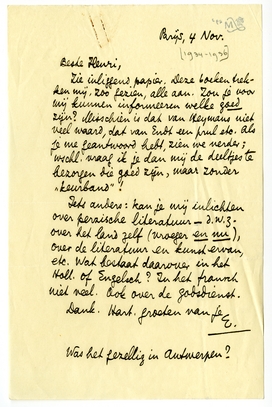 Brijs, 4 Nov.
(1934-1936)
Beste Henri,
Zie inliggend papier. Deze boeken trek-
ken mij. Zoo gezien, alle aan. Zou je voor
mij kunnen informeeren welke goed
zijn? Misschien is dat van Heymans niet
veel waard, dat van Endt een prul etc. Als
je me geantwoord hebt, zien we verder;
wschl. vraag ik je dan mij de deeltjes te
bezorgen die goed zijn, maar zonder
"keurband"!
Iets anders: kan je mij inlichten
over perzische literatuur — d.w.z.
over het land zelf (vroeger en nu),
over de literatuur en kunst ervan,
etc. Wat bestaat daarover in het
Holl. of Engelsch? In het fransch
niet veel. Ook over de godsdienst.
Dank. Hart. groeten van je
E.
Was het gezellig in Antwerpen?